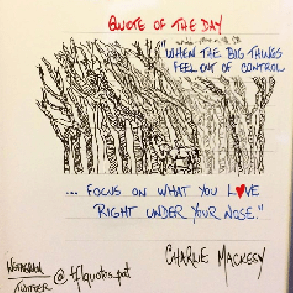 QUOTE OF THE DAY
"WHEN THE BIG THINGS
FEEL OUT OF CONTROL
... FOCUS ON WHAT YOU L♥VE
RIGHT UNDER YOUR NOSE."
CHARLIE MACKESY
INSTAGRAM
TWITTER